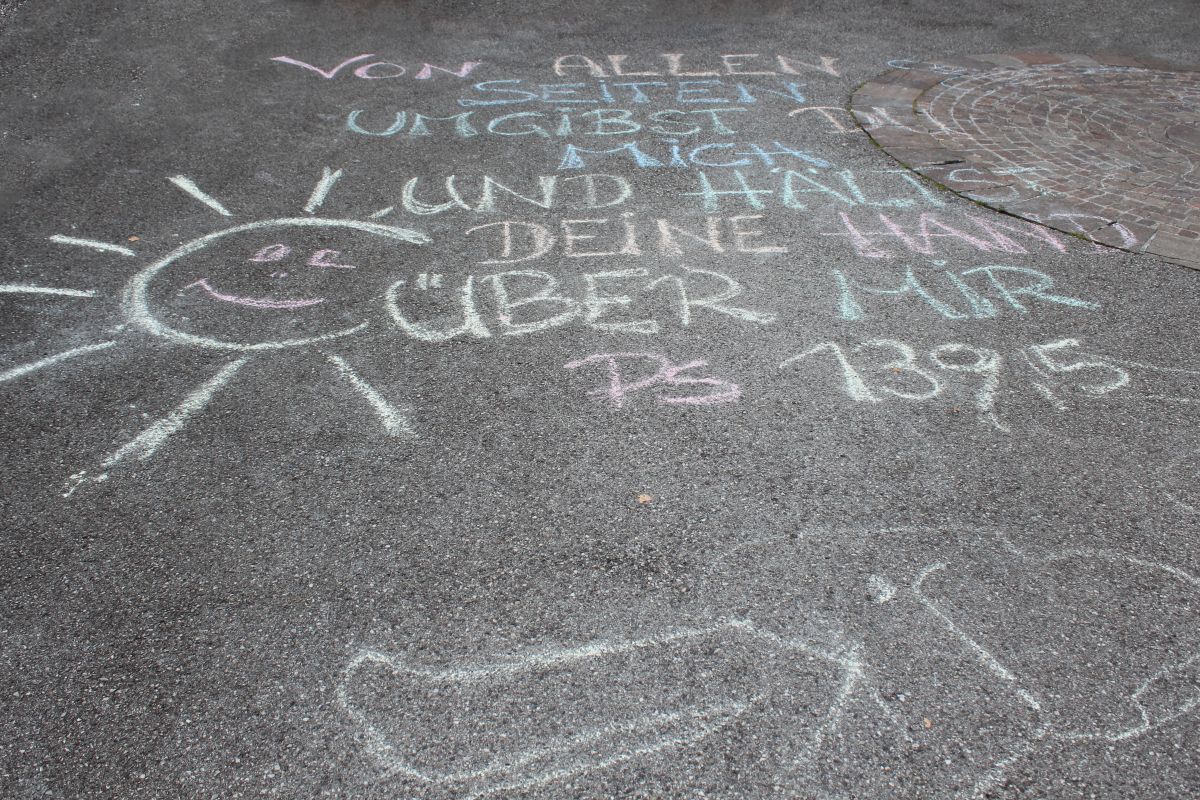 VON ALLEN
SEITEN
UMGIBST DU
MICH
UND HÄLTST
DEINE HAND
ÜBER MIR
PS 139,5